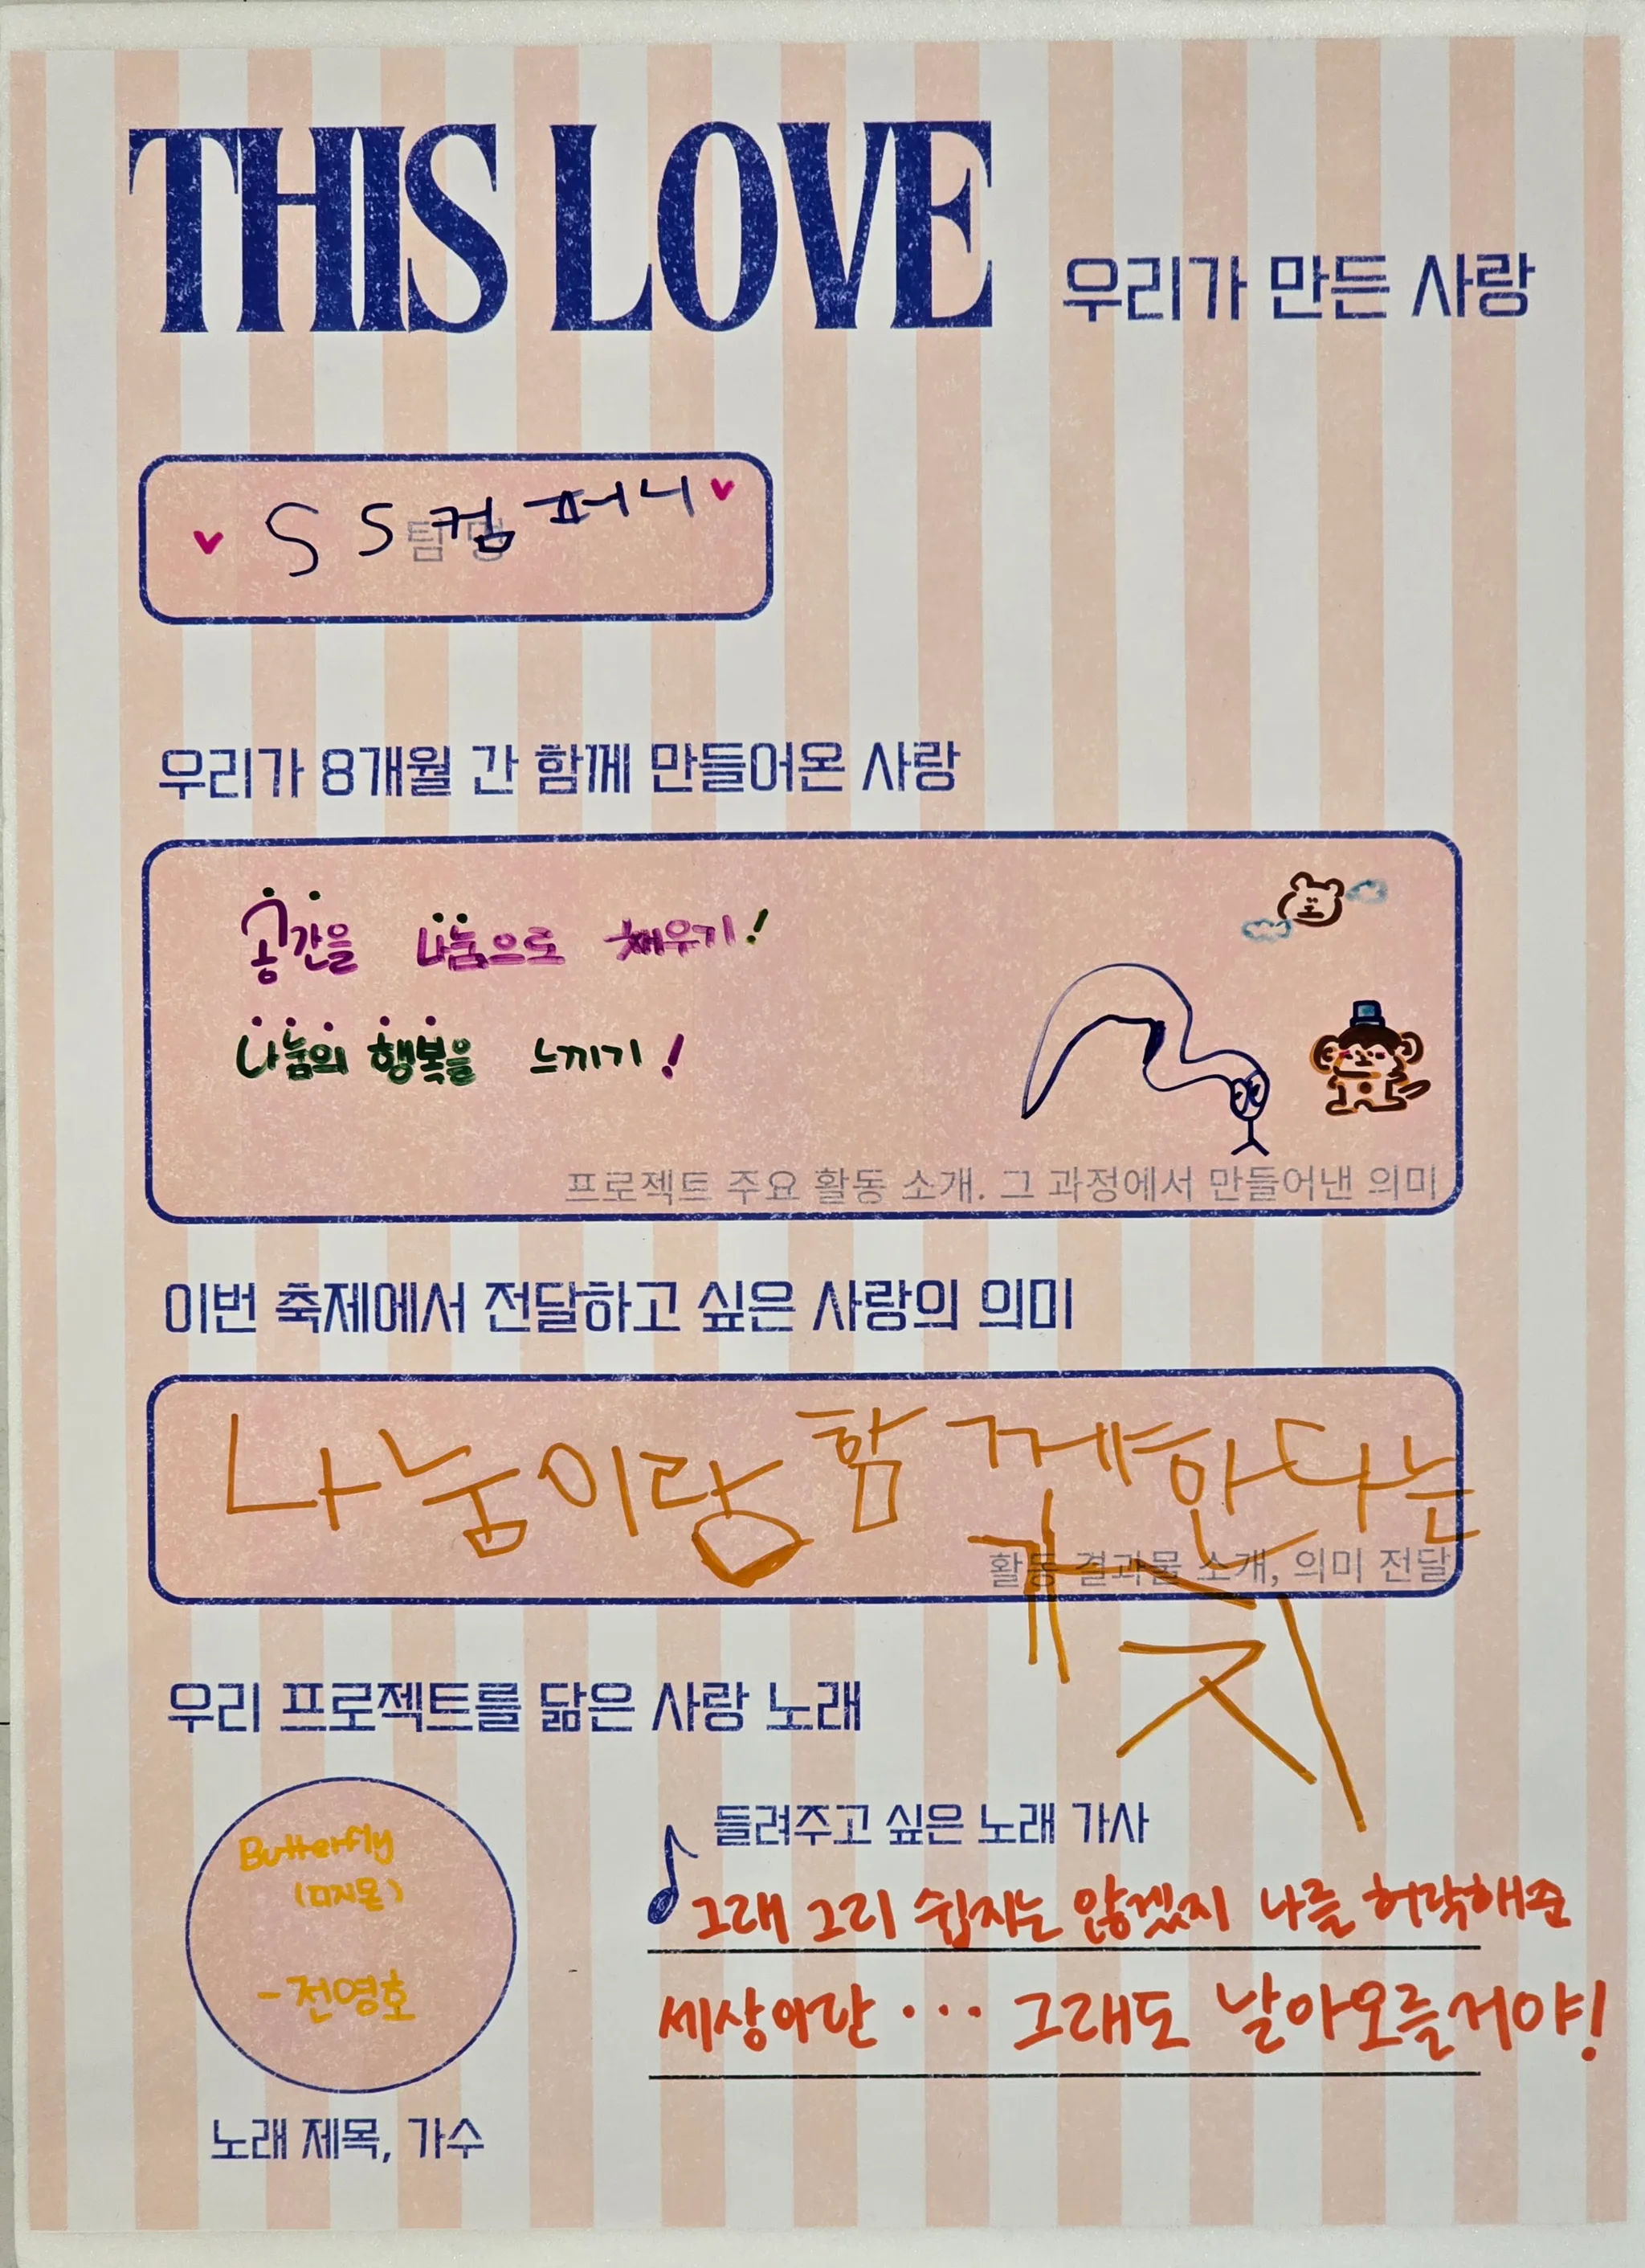 THIS LOVE 우리가 만든 사랑
SS컴퍼니
팀명
우리가 8개월 간 함께 만들어온 사랑
공간을 나눔으로 채우기!
나눔의 행복을 느끼기!
프로젝트 주요 활동 소개. 그 과정에서 만들어낸 의미
이번 축제에서 전달하고 싶은 사랑의 의미
나눔이랑 함께한다는
가치
활동 결과물 소개, 의미 전달
우리 프로젝트를 닮은 사랑 노래
Butterfly
(디지몬)
-전영호
노래 제목, 가수
들려주고 싶은 노래 가사
그래 그리 쉽지는 않겠지 나를 허락해준
세상이란 ··· 그래도 날아오를거야!